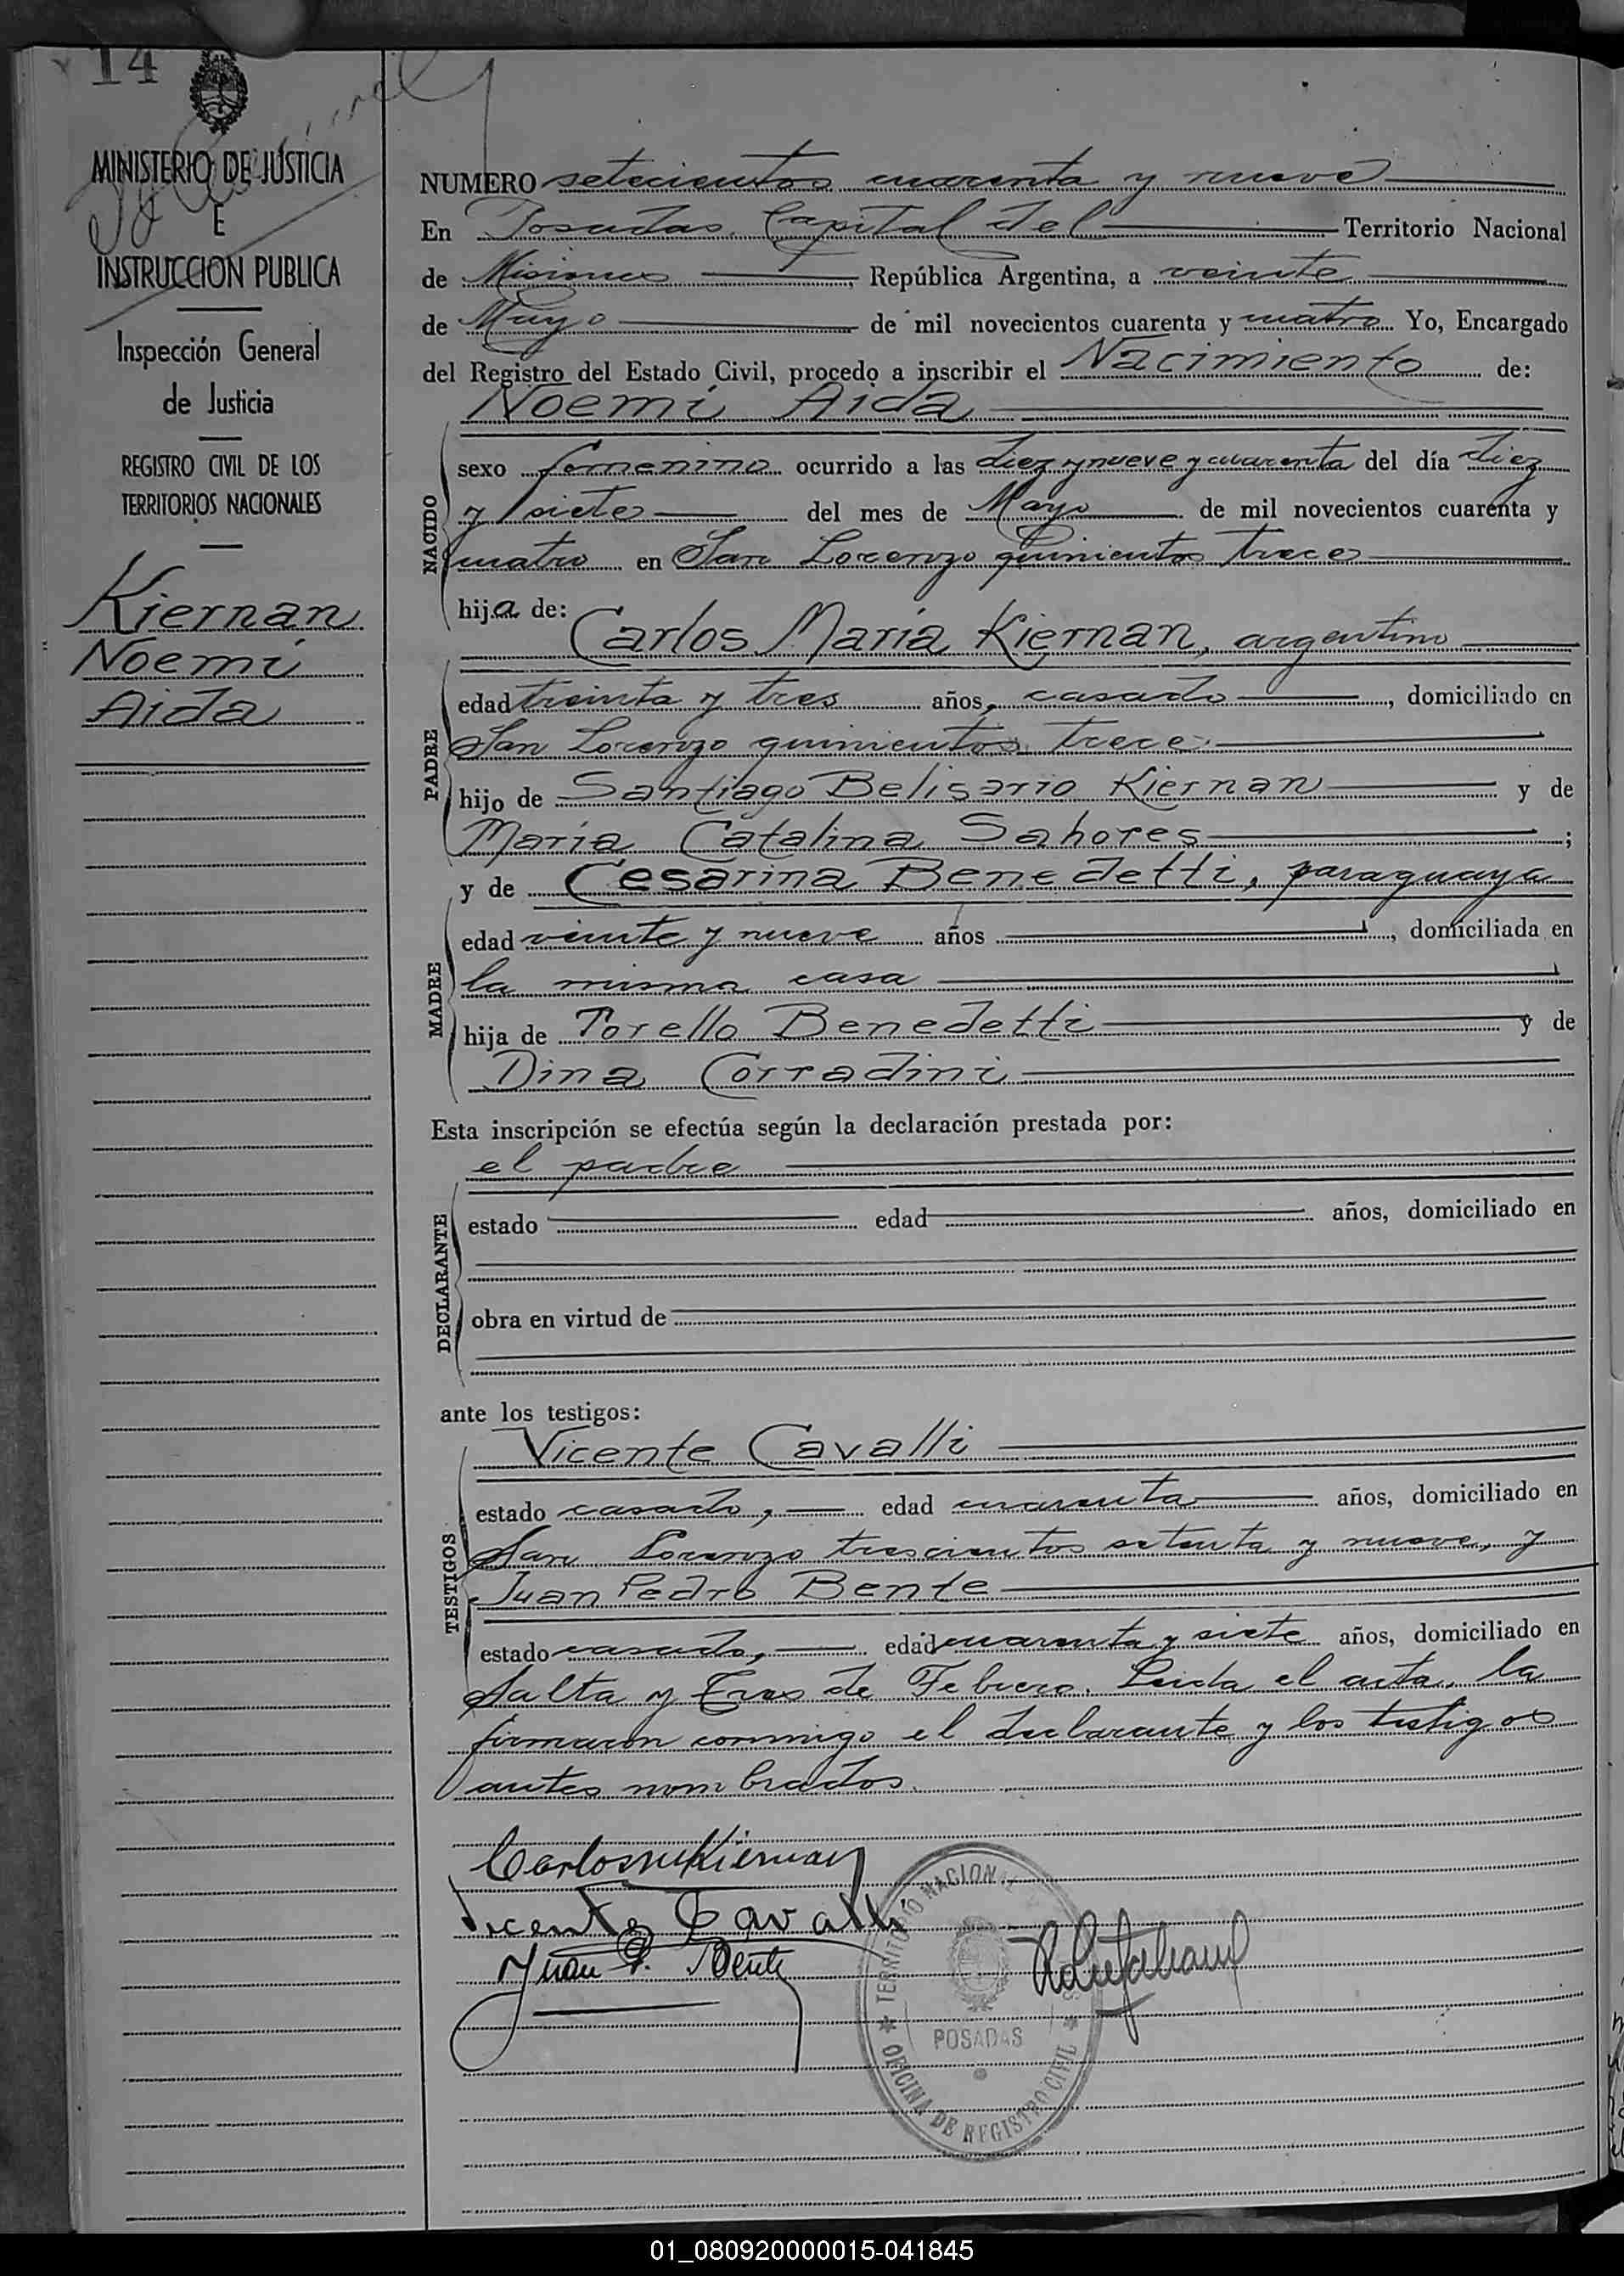 14
MINISTERIO DE JUSTICIA
E
INSTRUCCION PUBLICA
Inspección General
de Justicia
REGISTRO CIVIL DE LOS
TERRITORIOS NACIONALES
Kiernan
Noemí
Aida
NUMERO setecientos cuarenta y nueve
En Posadas, Capital del Territorio Nacional
de Misiones, República Argentina, a veinte
de Mayo de mil novecientos cuarenta y cuatro Yo, Encargado
del Registro del Estado Civil, procedo a inscribir el Nacimiento de:
Noemí Aida
NACIDO
sexo femenino ocurrido a las diez y nueve y cuarenta del día diez
y siete del mes de Mayo de mil novecientos cuarenta y
cuatro en San Lorenzo quinientos trece
hija de:
Carlos María Kiernan, argentino
PADRE
edad treinta y tres años, casado, domiciliado en
San Lorenzo quinientos trece
hijo de Santiago Belisario Kiernan y de
María Catalina Sahores;
y de Cesarina Benedetti, paraguaya
MADRE
edad veinte y nueve años, domiciliada en
la misma casa
hija de Torello Benedetti y de
Dina Corradini
Esta inscripción se efectúa según la declaración prestada por:
el padre
DECLARANTE
estado edad años, domiciliado en
obra en virtud de
ante los testigos:
Vicente Cavalli
TESTIGOS
estado casado, edad cuarenta años, domiciliado en
San Lorenzo trescientos setenta y nueve, y
Juan Pedro Bente
estado casado, edad cuarenta y siete años, domiciliado en
Salta y Tres de Febrero. Leida el acta, la
firmaron conmigo el declarante y los testigos
antes nombrados.
Carlos M Kiernan
Vicente Cavalli
Juan P. Bente
TERRITORIO NACIONAL
POSADAS
OFICINA DE REGISTRO CIVIL
01_080920000015-041845